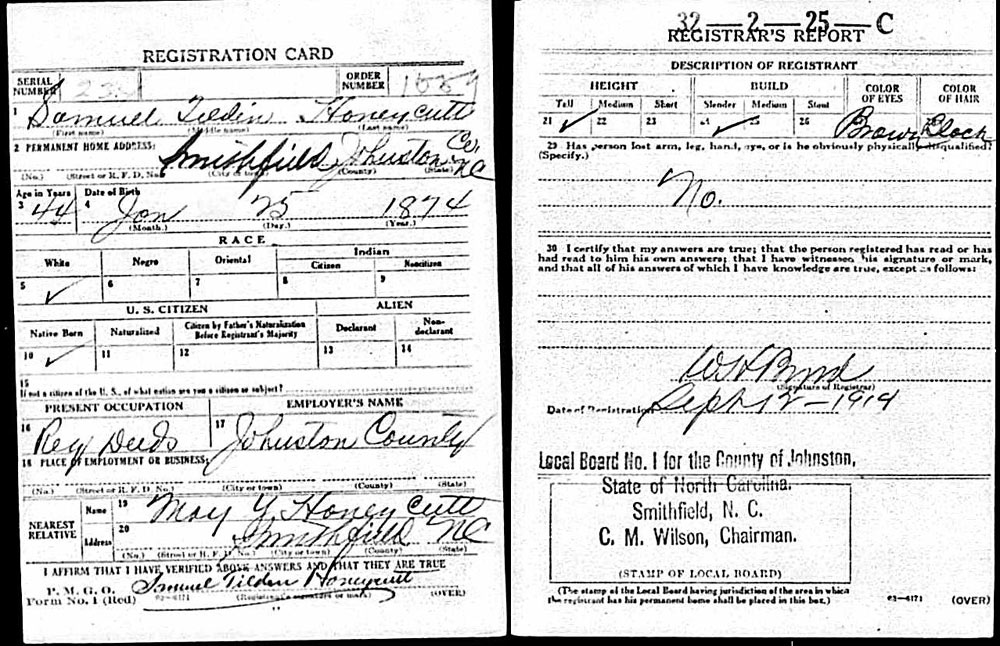 REGISTRATION CARD
SERIAL NUMBER
ORDER NUMBER
1 Samuel Tildin Honeycutt
(First name) (Middle name) (Last name)
2 PERMANENT HOME ADDRESS: Smithfield Johnston Co. NC
(No.) (Street or R. F. D. No.) (City or town) (County) (State)
Age in Years Date of Birth
3 44 4 Jan 25 1874
(Month.) (Day.) (Year.)
RACE
White Negro Oriental Indian
Citizen Noncitizen
5 ✓ 6 7 8 9
U. S. CITIZEN ALIEN
Native Born Naturalized Citizen by Father's Naturalization Before Registrant's Majority Declarant Non-declarant
10 ✓ 11 12 13 14
15
If not a citizen of the U. S., of what nation are you a citizen or subject?
PRESENT OCCUPATION EMPLOYER'S NAME
16 Reg Deeds 17 Johnston County
18 PLACE OF EMPLOYMENT OR BUSINESS:
(No.) (Street or R. F. D. No.) (City or town) (County) (State)
NEAREST RELATIVE
Name 19 May Y Honeycutt
Address 20 Smithfield NC
(No.) (Street or R. F. D. No.) (City or town) (County) (State)
I AFFIRM THAT I HAVE VERIFIED ABOVE ANSWERS AND THAT THEY ARE TRUE
P. M. G. O.
Form No. 1 (Red)
Samuel Tilden Honeycutt
(Registrant's signature or mark) (OVER)
32—2—25—C
REGISTRAR'S REPORT
DESCRIPTION OF REGISTRANT
HEIGHT BUILD COLOR OF EYES COLOR OF HAIR
Tall Medium Short Slender Medium Stout
21 ✓ 22 23 24 ✓ 25 26 Brown Black
29 Has person lost arm, leg, hand, eye, or is he obviously physically disqualified?
(Specify.)
No.
30 I certify that my answers are true; that the person registered has read or has
had read to him his own answers; that I have witnessed his signature or mark,
and that all of his answers of which I have knowledge are true, except as follows:
(Signature of Registrar)
Date of Registration Sept 12—1919
Local Board No. 1 for the County of Johnston,
State of North Carolina.
Smithfield, N. C.
C. M. Wilson, Chairman.
(STAMP OF LOCAL BOARD)
(The stamp of the Local Board having jurisdiction of the area in which
the registrant has his permanent home shall be placed in this box.)
03—6171 (OVER)